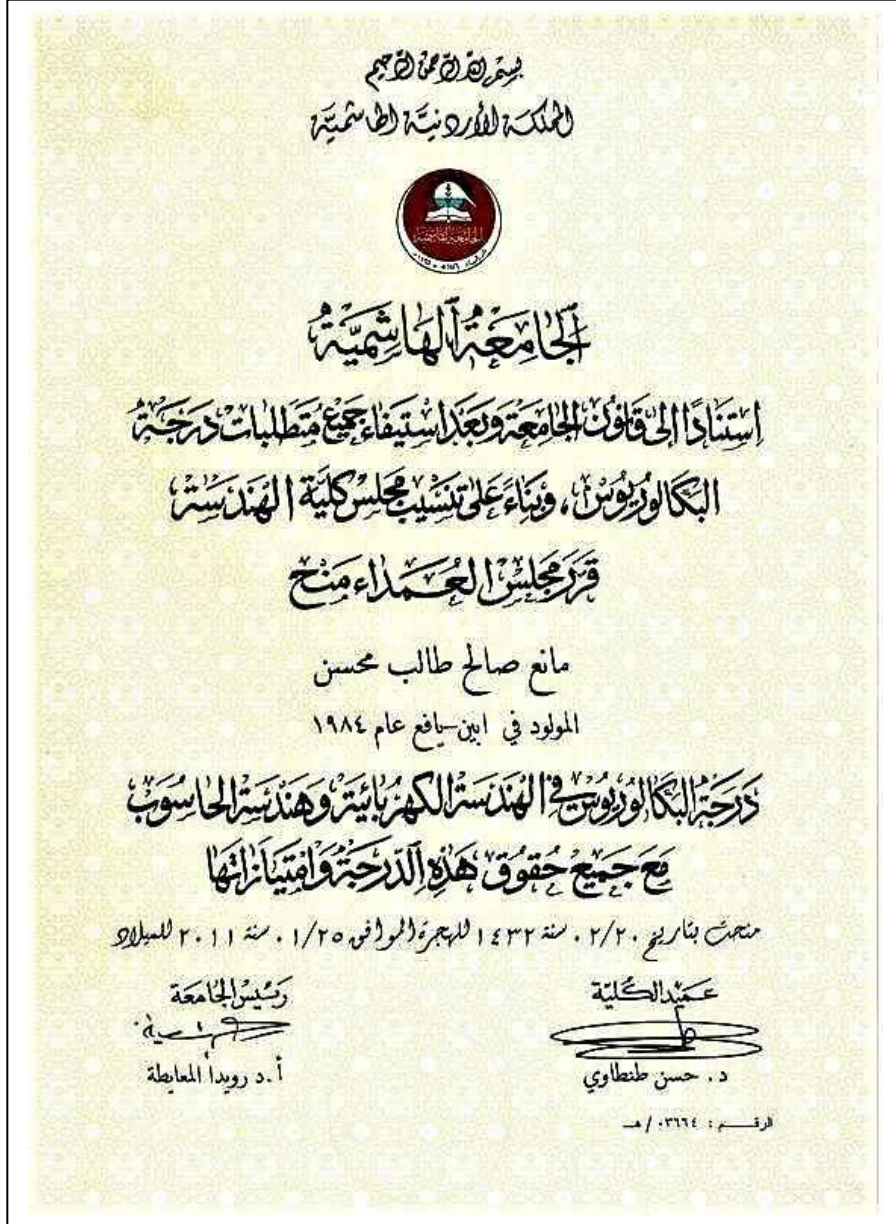 بسم الله الرحمن الرحيم
المملكة الأردنية الهاشمية
الجامعة الهاشمية
الجامعة الهاشمية
استنادًا إلى قانون الجامعة وبعد استيفاء جميع متطلبات درجة
البكالوريوس، وبناءً على تنسيب مجلس كلية الهندسة
قرر مجلس العمداء منح
مانع صالح طالب محسن
المولود في ابين-يافع عام ١٩٨٤
درجة البكالوريوس في الهندسة الكهربائية وهندسة الحاسوب
مع جميع حقوق هذه الدرجة وامتيازاتها
منحت بتاريخ ٠٢/٢٠ سنة ١٤٣٢ للهجرة الموافق ٠١/٢٥ سنة ٢٠١١ للميلاد
عميد الكلية
د. حسن طنطاوي
رئيس الجامعة
أ.د رويدا المعايطة
الرقم : ٠٣٦٦٤ / هـ